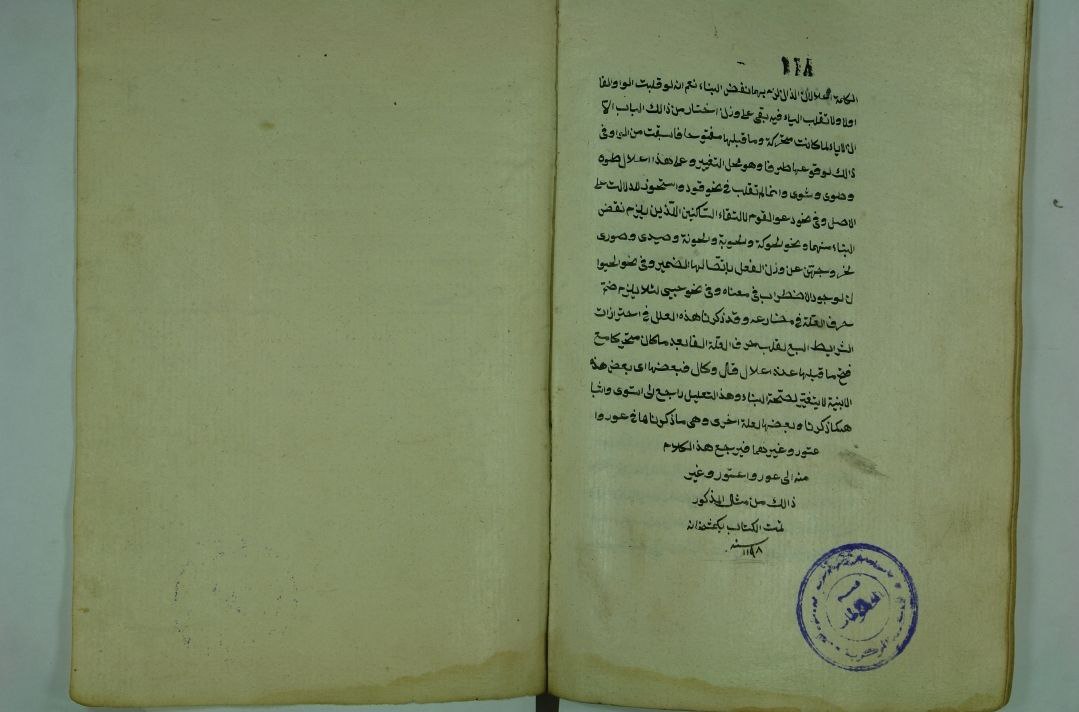 نقض البناء نعم انه لو قلبت الواو الفا
اولا ولا تقلب الياء فيه بقى على وزن اختار من ذالك الباب الا
متحركة وما قبلها مفتوحا
ذالك لوقوعها طرفا وهو محل التغيير وعلى هذا اعلال طوى
وطوى وشوى وانما لم تقلب فى نحو قود واستحوذ للدلالت على
الاصل وفى نحو دعو القوم لالتقاء الساكنين اللذين يلزم نقض
البناء منهما ونحو الحوكة والخونة وصيدى وصورى
لخروجهن عن وزن الفعل باتصالها الضمير وفى نحو الحيوا
ن لوجود الاضطراب فى معناه وفى نحو حيى لئلا يلزم ضم
حرف العلة فى مضارعه وقد ذكرنا هذه العلل فى احترازات
الشرايط السبع لقلب حرف العلة الفا بعد ما كان متحركا مع
فتح ما قبلها عنه اعلال قال وكال فبعضها اى بعض هذه
الابنية لا يتغير لصحة البناء وهذا التعليل راجع الى استوى
هكذا ذكرنا وبعضها لعلة اخرى وهى ما ذكرناها فى عور وا
عتور وغيرهما فيرجع هذا الكلام
منه الى عور واعتور وغير
ذالك من مثال المذكور
تمت الكتاب
سنه
١١٩٨